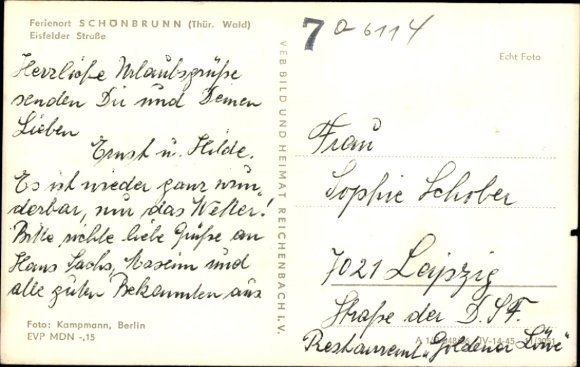 Ferienort SCHÖNBRUNN (Thür. Wald)
Eisfelder Straße
Herzliche Urlaubsgrüße
senden Dir und Deinen
Lieben
Ernst u. Hilde.
Es ist wieder ganz wun-
derbar, nur das Wetter!
Bitte richte liebe Grüße an
Hans Sachs, und
alle guten Bekannten aus
Foto: Kampmann, Berlin
EVP MDN -,15
VEB BILD UND HEIMAT REICHENBACH I. V.
7
a 6114
Echt Foto
Frau
Sophie Schober
7021 Leipzig
Straße der D.S.F.
Restaurant „Goldener Löwe"
IV-14-45